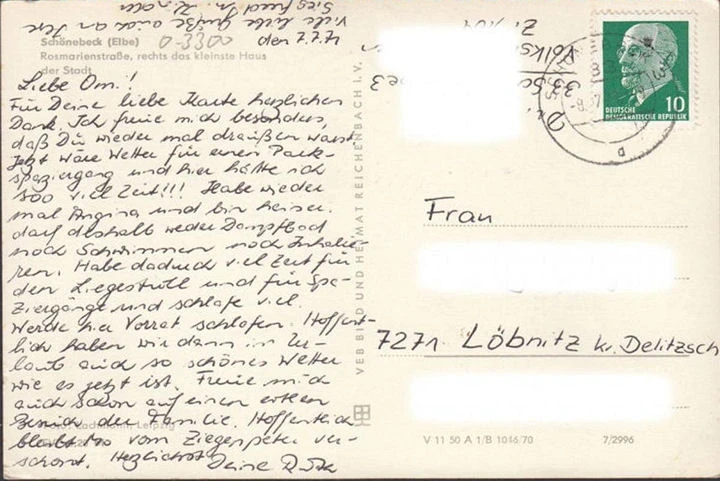 Viele liebe Grüße auch an Ihre
Schönebeck (Elbe)
0-3300
den 7.7.71
Rosmarienstraße, rechts das kleinste Haus
der Stadt
Liebe Omi!
Für Deine liebe Karte herzlichen
Dank. Ich freue mich besonders,
daß Du wieder mal draußen warst.
Jetzt wäre Wetter für einen Park-
spaziergang und hier hätte ich
soo viel Zeit!!! Habe wieder
mal Angina und bin heiser.
darf deshalb weder Dampfbad
noch Schwimmen noch Inhalie-
ren. Habe dadurch viel Zeit für
den Liegestuhl und für Spa-
ziergänge und schlafe viel.
Werde hier Vorrat schlafen. Hoffent-
lich haben wir dann im Ur-
laub auch so schönes Wetter
wie es jetzt ist. Freue mich
auch schon auf einen ersten
Besuch der Familie. Hoffentlich
bleibt Ihr vom Ziegenpeter ver-
schont. Herzlichst Deine
VEB BILD UND HEIMAT REICHENBACH I. V.
DEUTSCHE
DEMOKRATISCHE REPUBLIK
10
Frau
7271 Löbnitz kr. Delitzsch
V 11 50 A 1/B 1046/70
7/2996